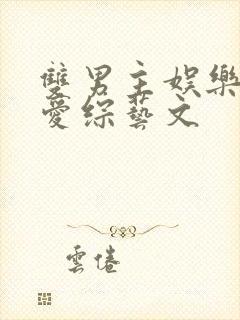 雙男主娛樂
愛綜藝文
雲倦